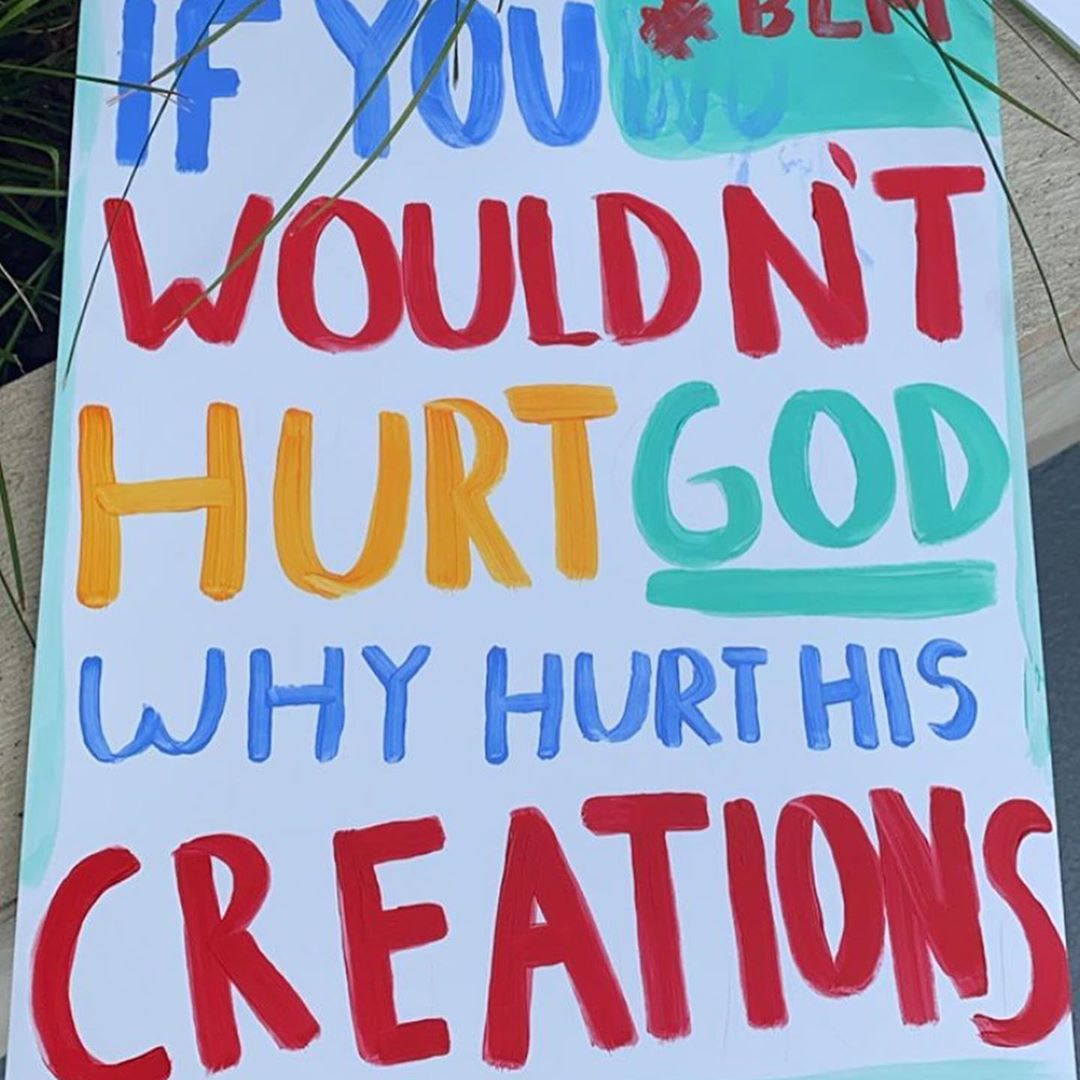 IF YOU #BLM
WOULDN'T
HURT GOD
WHY HURT HIS
CREATIONS